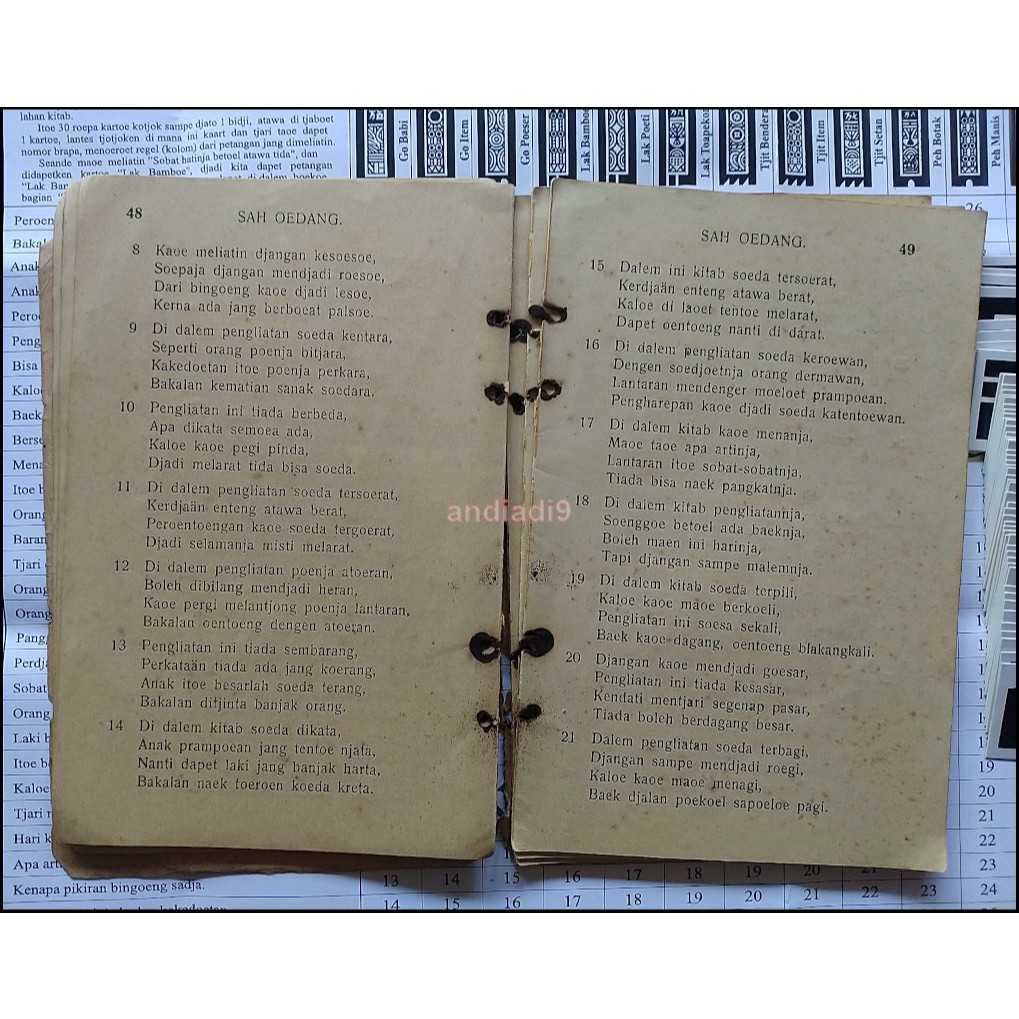 lahan kitab.
Itoe 30 roepa kartoe kotjok sampe djato 1 bidji, atawa di tjaboet
1 kartoe, lantes tjotjoken di mana ini kaart dan tjari taoe dapet
nomor brapa, menoeroet regel (kolom) dari petangan jang dimeliatin.
Seande maoe meliatin "Sobat hatinja betoel atawa tida", dan
didapetken kartoe "Lak Bamboe", djadi kita dapet petangan
"Lak
bagian
Go Babi
Go Item
Go Poeser
Lak Bamboe
Lak Poeti
Lak Toapekon
Tjit Bendera
Tjit Item
Tjit Setan
Peh Botak
Peh Manis
26
Peroen
Bakal
Anak
Anak
Peroe
Peng
Bisa
Kaloe
Baek
Berse
Mena
Itoe b
Orang
Baran
Tjari
Orang
Orang
Pang
Perdj
Sobat
Orang
Laki b
Itoe be
Kaloe
Tjari n
Hari k
Apa art
Kenapa pikiran bingoeng sadja.
48
SAH OEDANG.
8 Kaoe meliatin djangan kesoesoe,
Soepaja djangan mendjadi roesoe,
Dari bingoeng kaoe djadi lesoe,
Kerna ada jang berboeat palsoe.
9 Di dalem pengliatan soeda kentara,
Seperti orang poenja bitjara,
Kakedoetan itoe poenja perkara,
Bakalan kematian sanak soedara.
10 Pengliatan ini tiada berbeda,
Apa dikata semoea ada,
Kaloe kaoe pegi pinda,
Djadi melarat tida bisa soeda.
11 Di dalem pengliatan soeda tersoerat,
Kerdjaän enteng atawa berat,
Peroentoengan kaoe soeda tergoerat,
Djadi selamanja misti melarat.
12 Di dalem pengliatan poenja atoeran,
Boleh dibilang mendjadi heran,
Kaoe pergi melantjong poenja lantaran,
Bakalan oentoeng dengen atoeran.
13 Pengliatan ini tiada sembarang,
Perkataän tiada ada jang koerang,
Anak itoe besarlah soeda terang,
Bakalan ditjinta banjak orang.
14 Di dalem kitab soeda dikata,
Anak prampoean jang tentoe njata,
Nanti dapet laki jang banjak harta,
Bakalan naek toeroen koeda kreta.
SAH OEDANG.
49
15 Dalem ini kitab soeda tersoerat,
Kerdjaän enteng atawa berat,
Kaloe di laoet tentoe melarat,
Dapet oentoeng nanti di darat.
16 Di dalem pengliatan soeda keroewan,
Dengen soedjoetnja orang dermawan,
Lantaran mendenger moeloet prampoean.
Pengharepan kaoe djadi soeda katentoewan.
17 Di dalem kitab kaoe menanja,
Maoe taoe apa artinja,
Lantaran itoe sobat-sobatnja,
Tiada bisa naek pangkatnja.
18 Di dalem pengliatannja,
Soenggoe betoel ada baeknja,
Boleh maen ini harinja,
Tapi djangan sampe malemnja.
19 Di dalem kitab soeda terpili,
Kaloe kaoe maoe berkoeli,
Pengliatan ini soesa sekali,
Baek kaoe dagang, oentoeng blakangkali.
20 Djangan kaoe mendjadi goesar,
Pengliatan ini tiada kesasar,
Kendati mentjari segenap pasar,
Tiada boleh berdagang besar.
21 Dalem pengliatan soeda terbagi,
Djangan sampe mendjadi roegi,
Kaloe kaoe maoe menagi,
Baek djalan poekoel sapoeloe pagi.
andiadi9
19
20
21
22
13 14 15 16 17 18 19 20 21 22 23
23
24
14 15 16 17 18 19 20 21 22 23 24